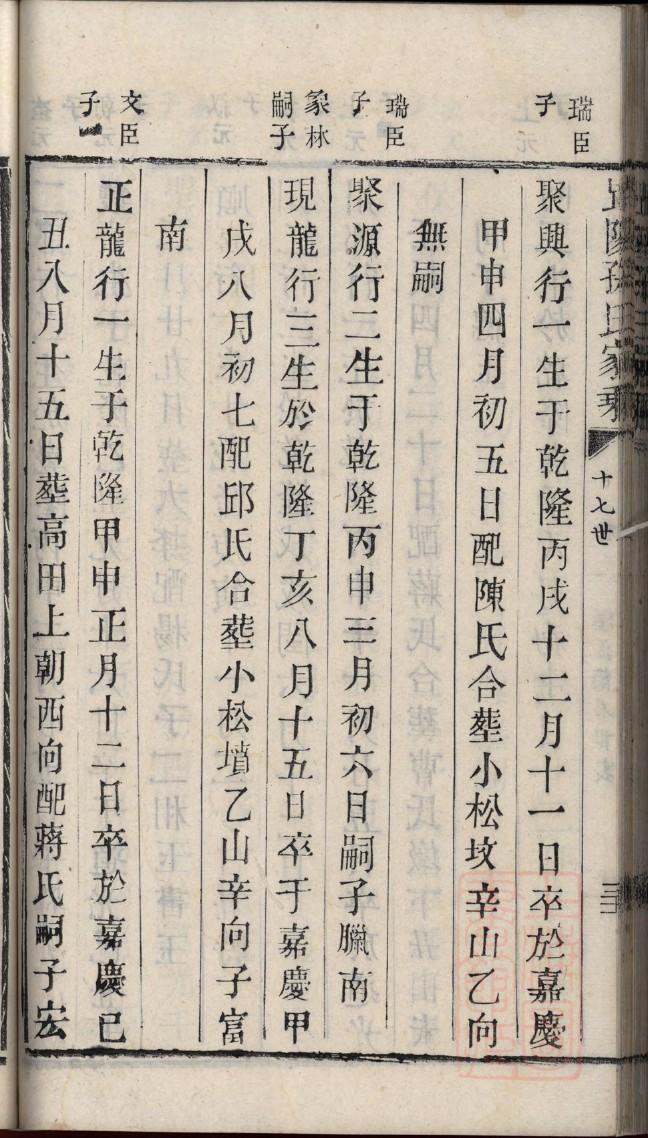 孫氏家乘
十七世
瑞臣
子
聚興行一生于乾隆丙戌十二月十一日卒於嘉慶
甲申四月初五日配陳氏合塟小松坟辛山乙向
無嗣
瑞臣
子
聚源行二生于乾隆丙申三月初六日嗣子臘南
象林
嗣子
現龍行三生於乾隆丁亥八月十五日卒于嘉慶甲
戌八月初七配邱氏合塟小松墳乙山辛向子富
南
文臣
子一
正龍行一生于乾隆甲申正月十二日卒於嘉慶已
丑八月十五日塟高田上朝西向配蔣氏嗣子宏